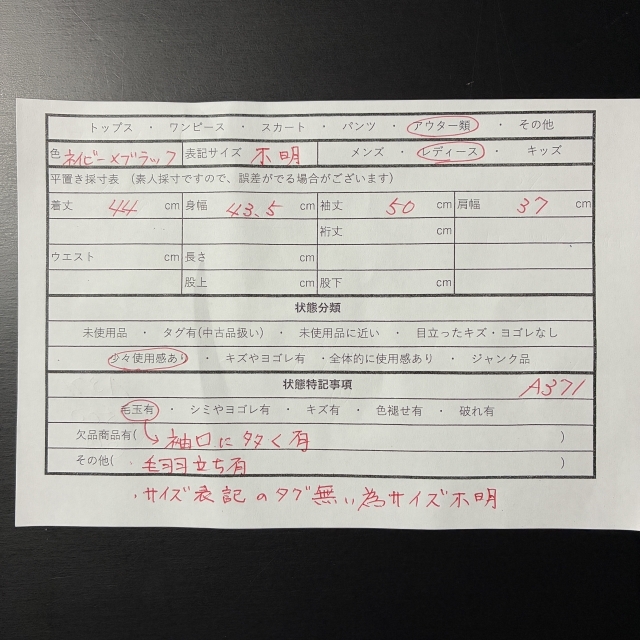 トップス ・ ワンピース ・ スカート ・ パンツ ・ アウター類 ・ その他
色 ネイビー×ブラック 表記サイズ 不明 メンズ ・ レディース ・ キッズ
平置き採寸表 (素人採寸ですので、誤差がでる場合がございます)
着丈 44 cm 身幅 43.5 cm 袖丈 50 cm 肩幅 37 cm
裄丈 cm
ウエスト cm 長さ cm
股上 cm 股下 cm
状態分類
未使用品 ・ タグ有(中古品扱い) ・ 未使用品に近い ・ 目立ったキズ・ヨゴレなし
少々使用感あり ・ キズやヨゴレ有 ・全体的に使用感あり ・ ジャンク品
状態特記事項 A371
毛玉有 ・ シミやヨゴレ有 ・ キズ有 ・ 色褪せ有 ・ 破れ有
欠品商品有( →袖口に多く有 )
その他( 毛羽立ち有 )
・サイズ表記のタグ無い為サイズ不明